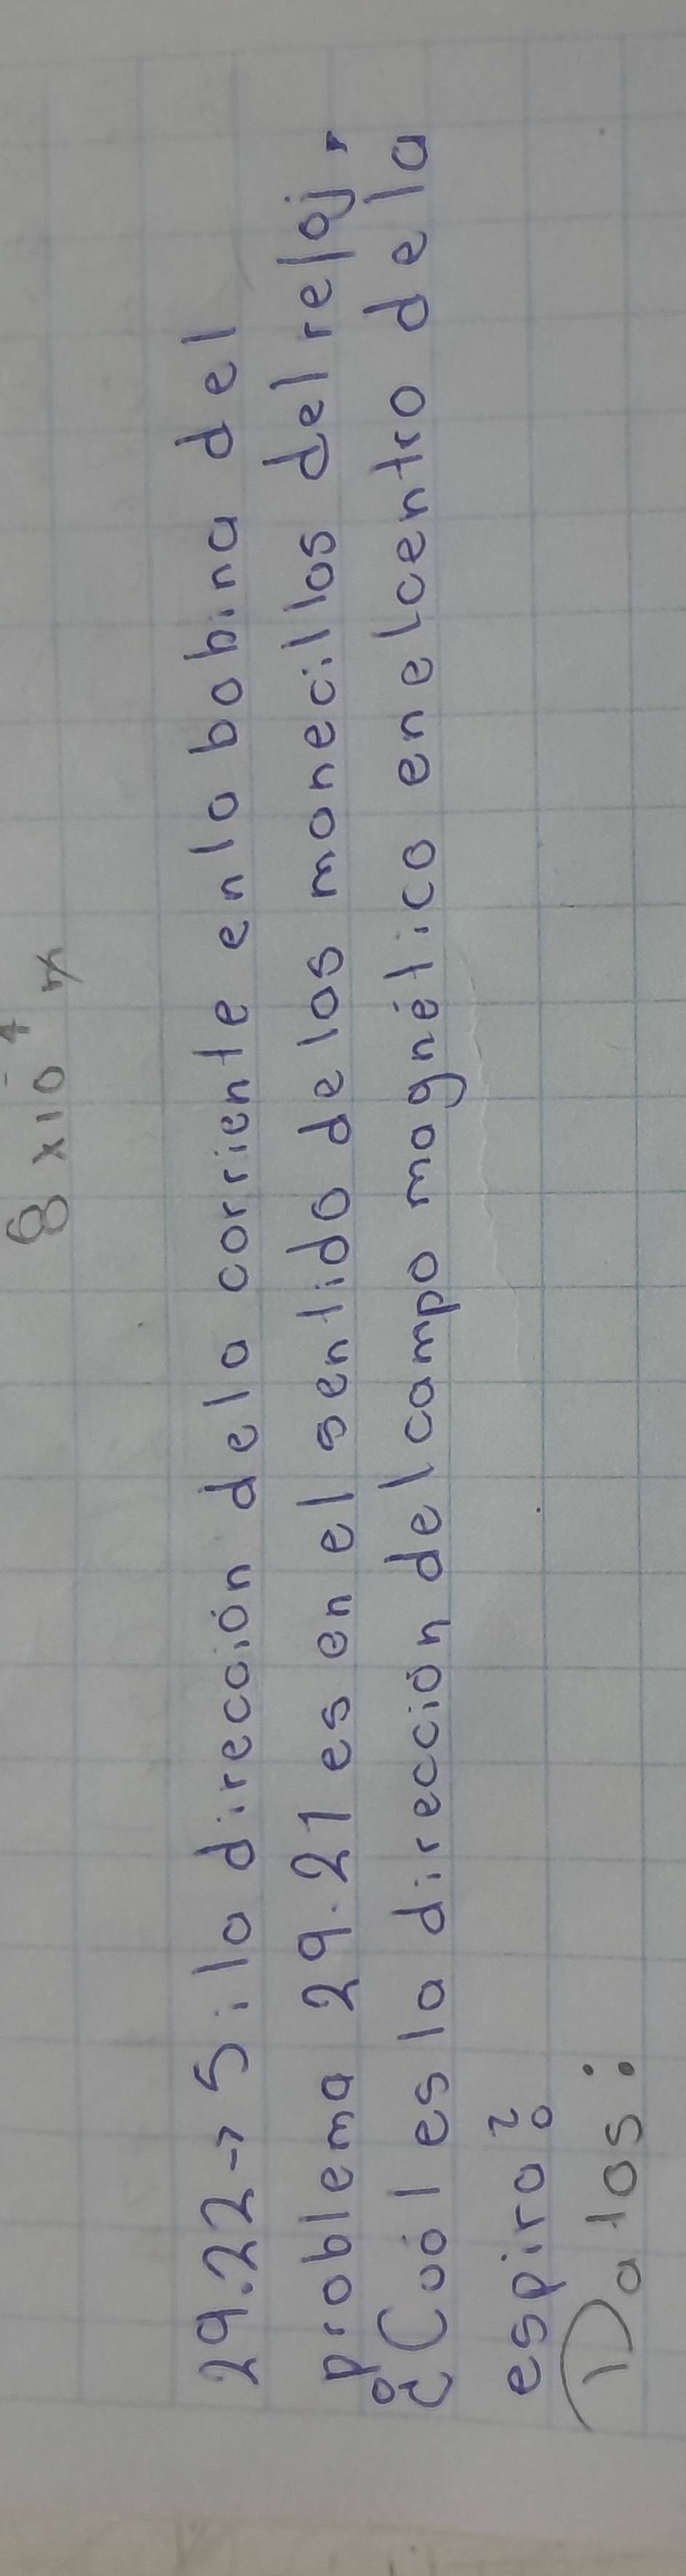 8 x10⁻⁴
29.22→ 5i la dirección dela corriente enla bobina del
problema 29.21 es en el sentido delos monecillos del reloj,
¿Cuál es la dirección del campo magnético enelcentro dela
espira?
Datos: